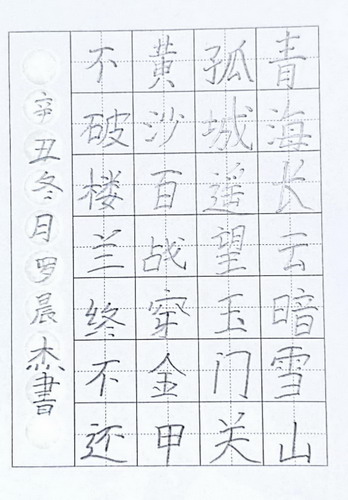 青海长云暗雪山
孤城遥望玉门关
黄沙百战穿金甲
不破楼兰终不还
辛丑冬月罗晨杰書